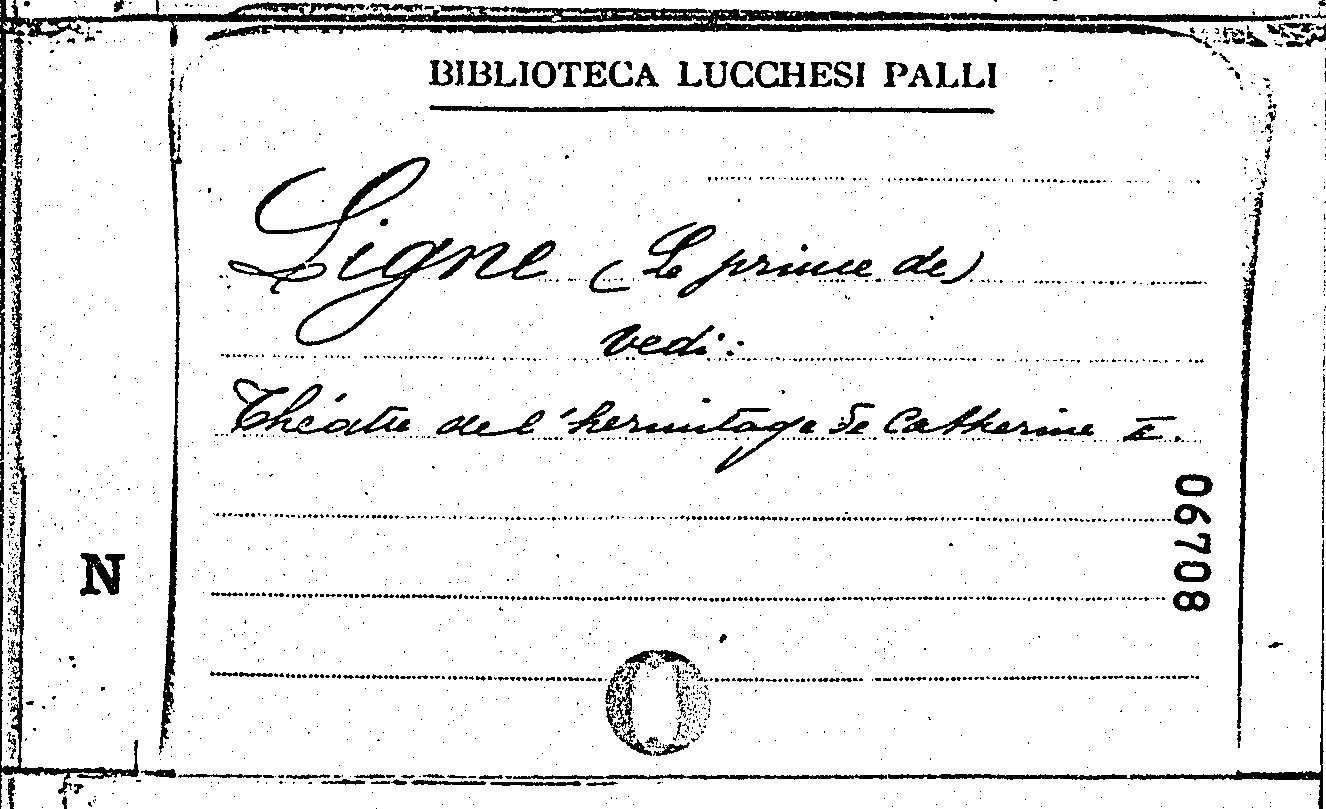 BIBLIOTECA LUCCHESI PALLI
Ligne (Le prince de)
vedi:
Théatre de l'hermitage de Catherine II.
06708
N